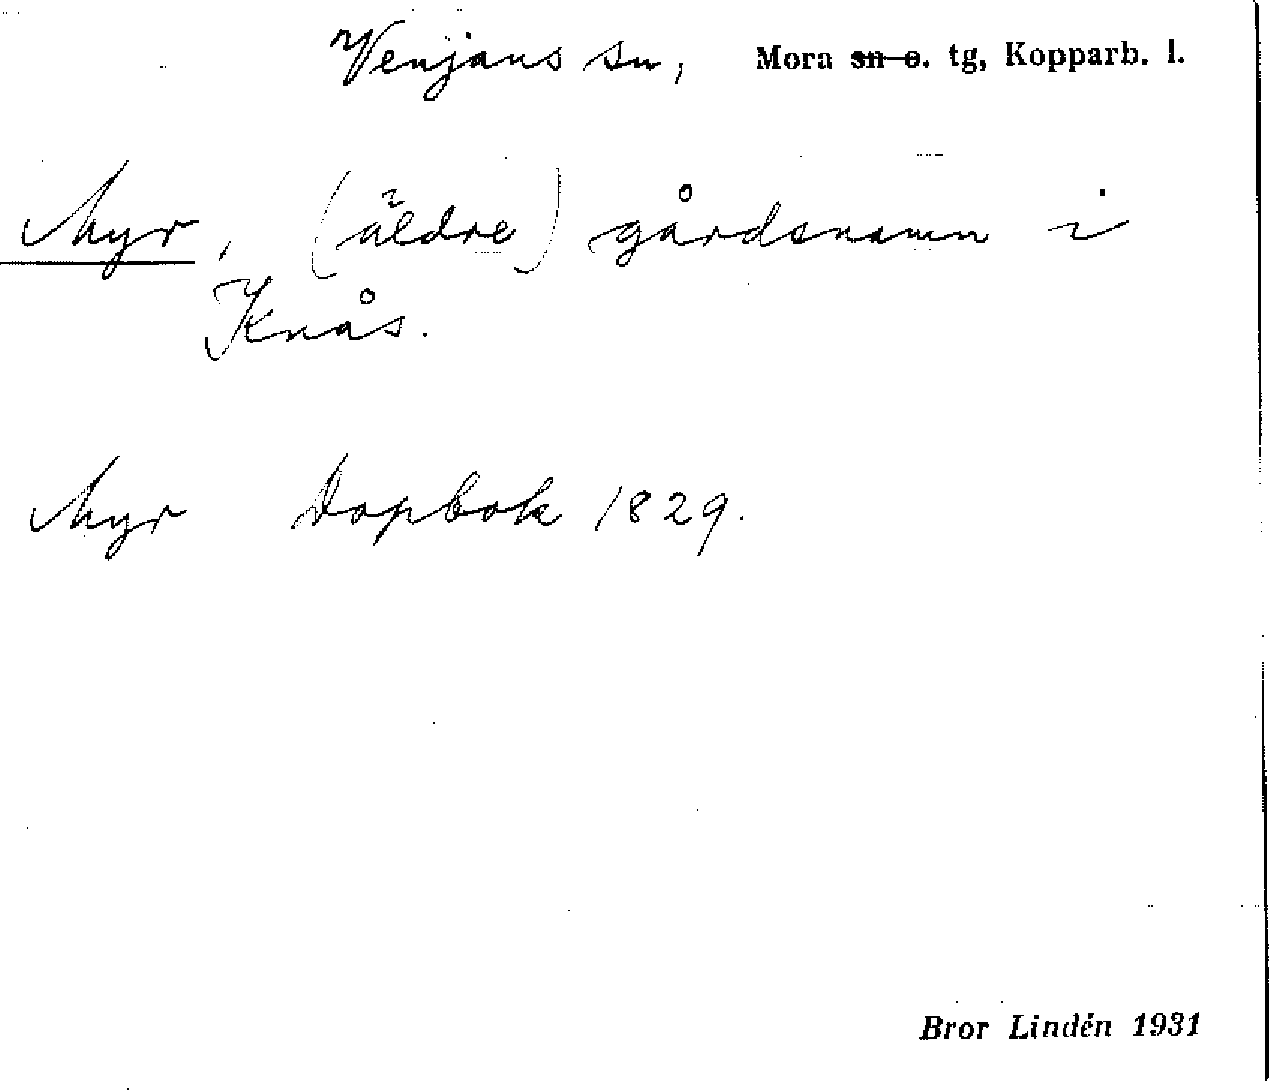 Venjans sn, Mora sn o. tg, Kopparb. l.
Myr, (äldre) gårdsnamn i
Knås.
Myr Dopbok 1829.
Bror Lindén 1931